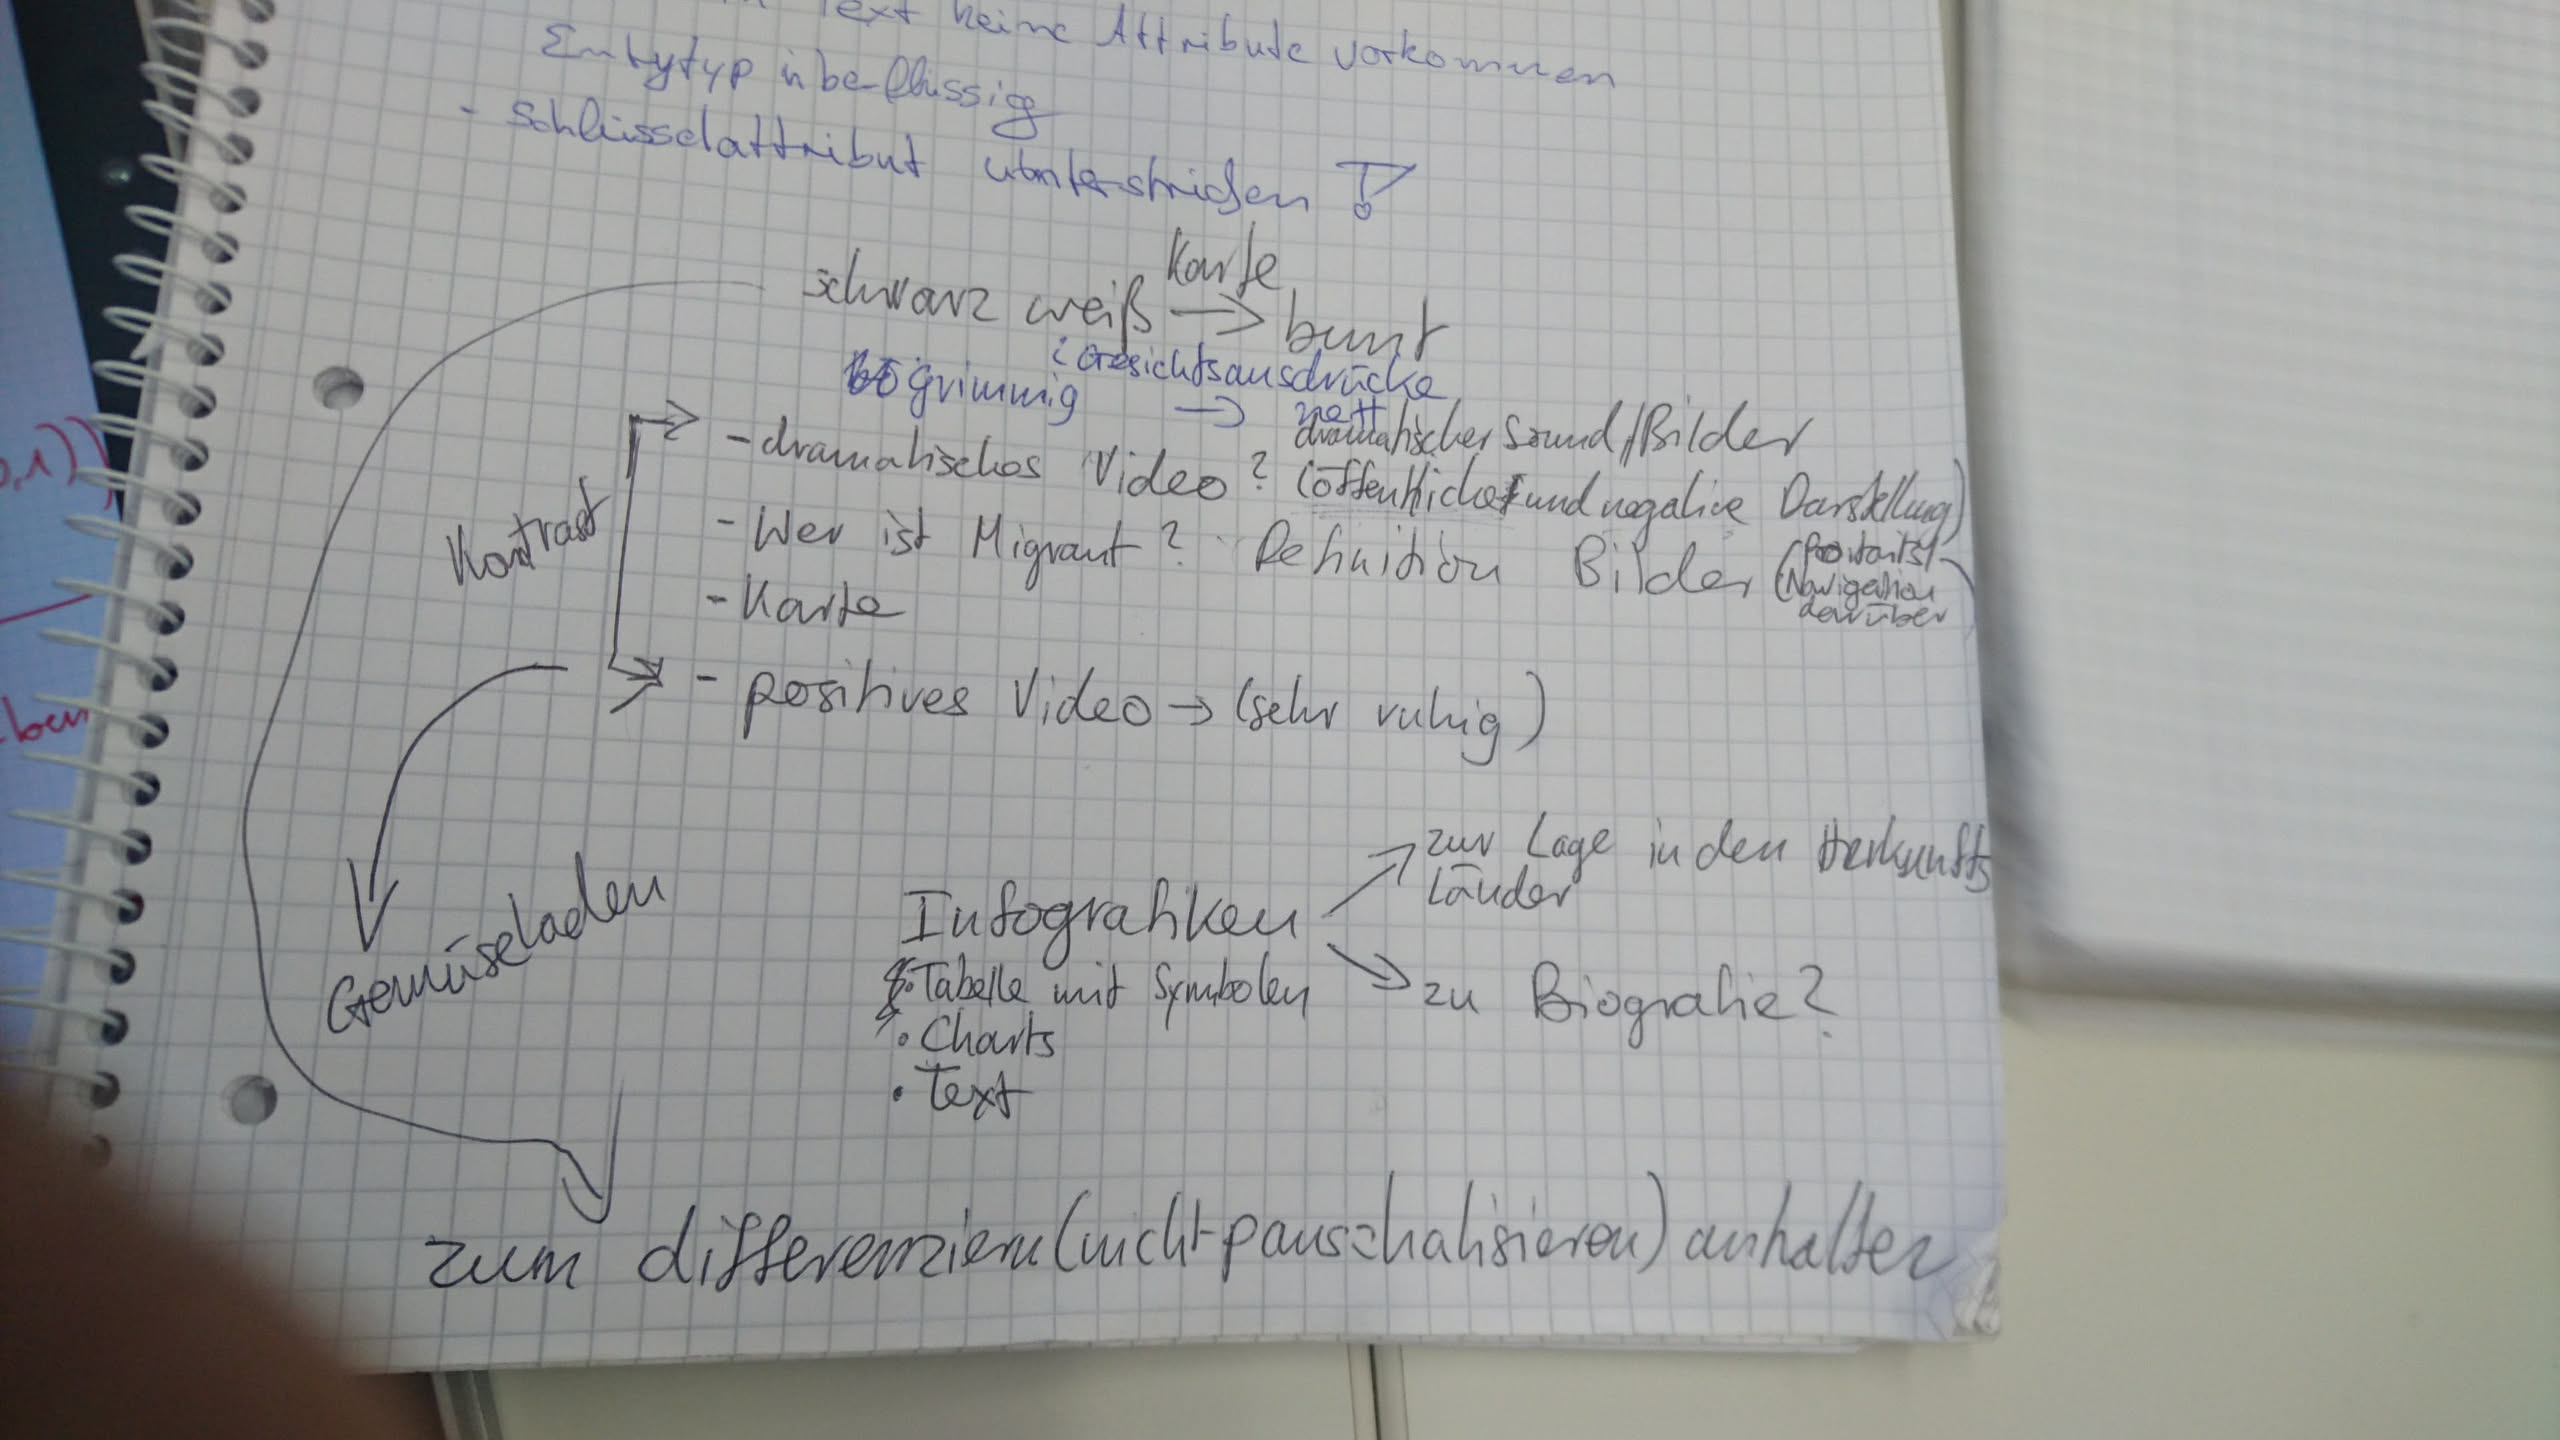 Text keine Attribute vorkommen
überflüssig
- Schlüsselattribut unterstrichen !
Karte
schwarz weiß → bunt
Gesichtsausdrücke
grimmig → nett
dramatischer Sound/Bilder
- dramatisches Video? (öffentliche und negative Darstellung)
Kontrast
- Wer ist Migrant? Definition Bilder (Portraits)
(Navigation
darüber
- Karte
- positives Video → (sehr ruhig)
Gemüseladen
zur Lage in den Herkunfts
länder
Infografiken
→ zu Biografie?
• Tabelle mit Symbolen
• Charts
• Text
zum differenziern (nicht pauschalisieren) anhalten
0,1))
ben